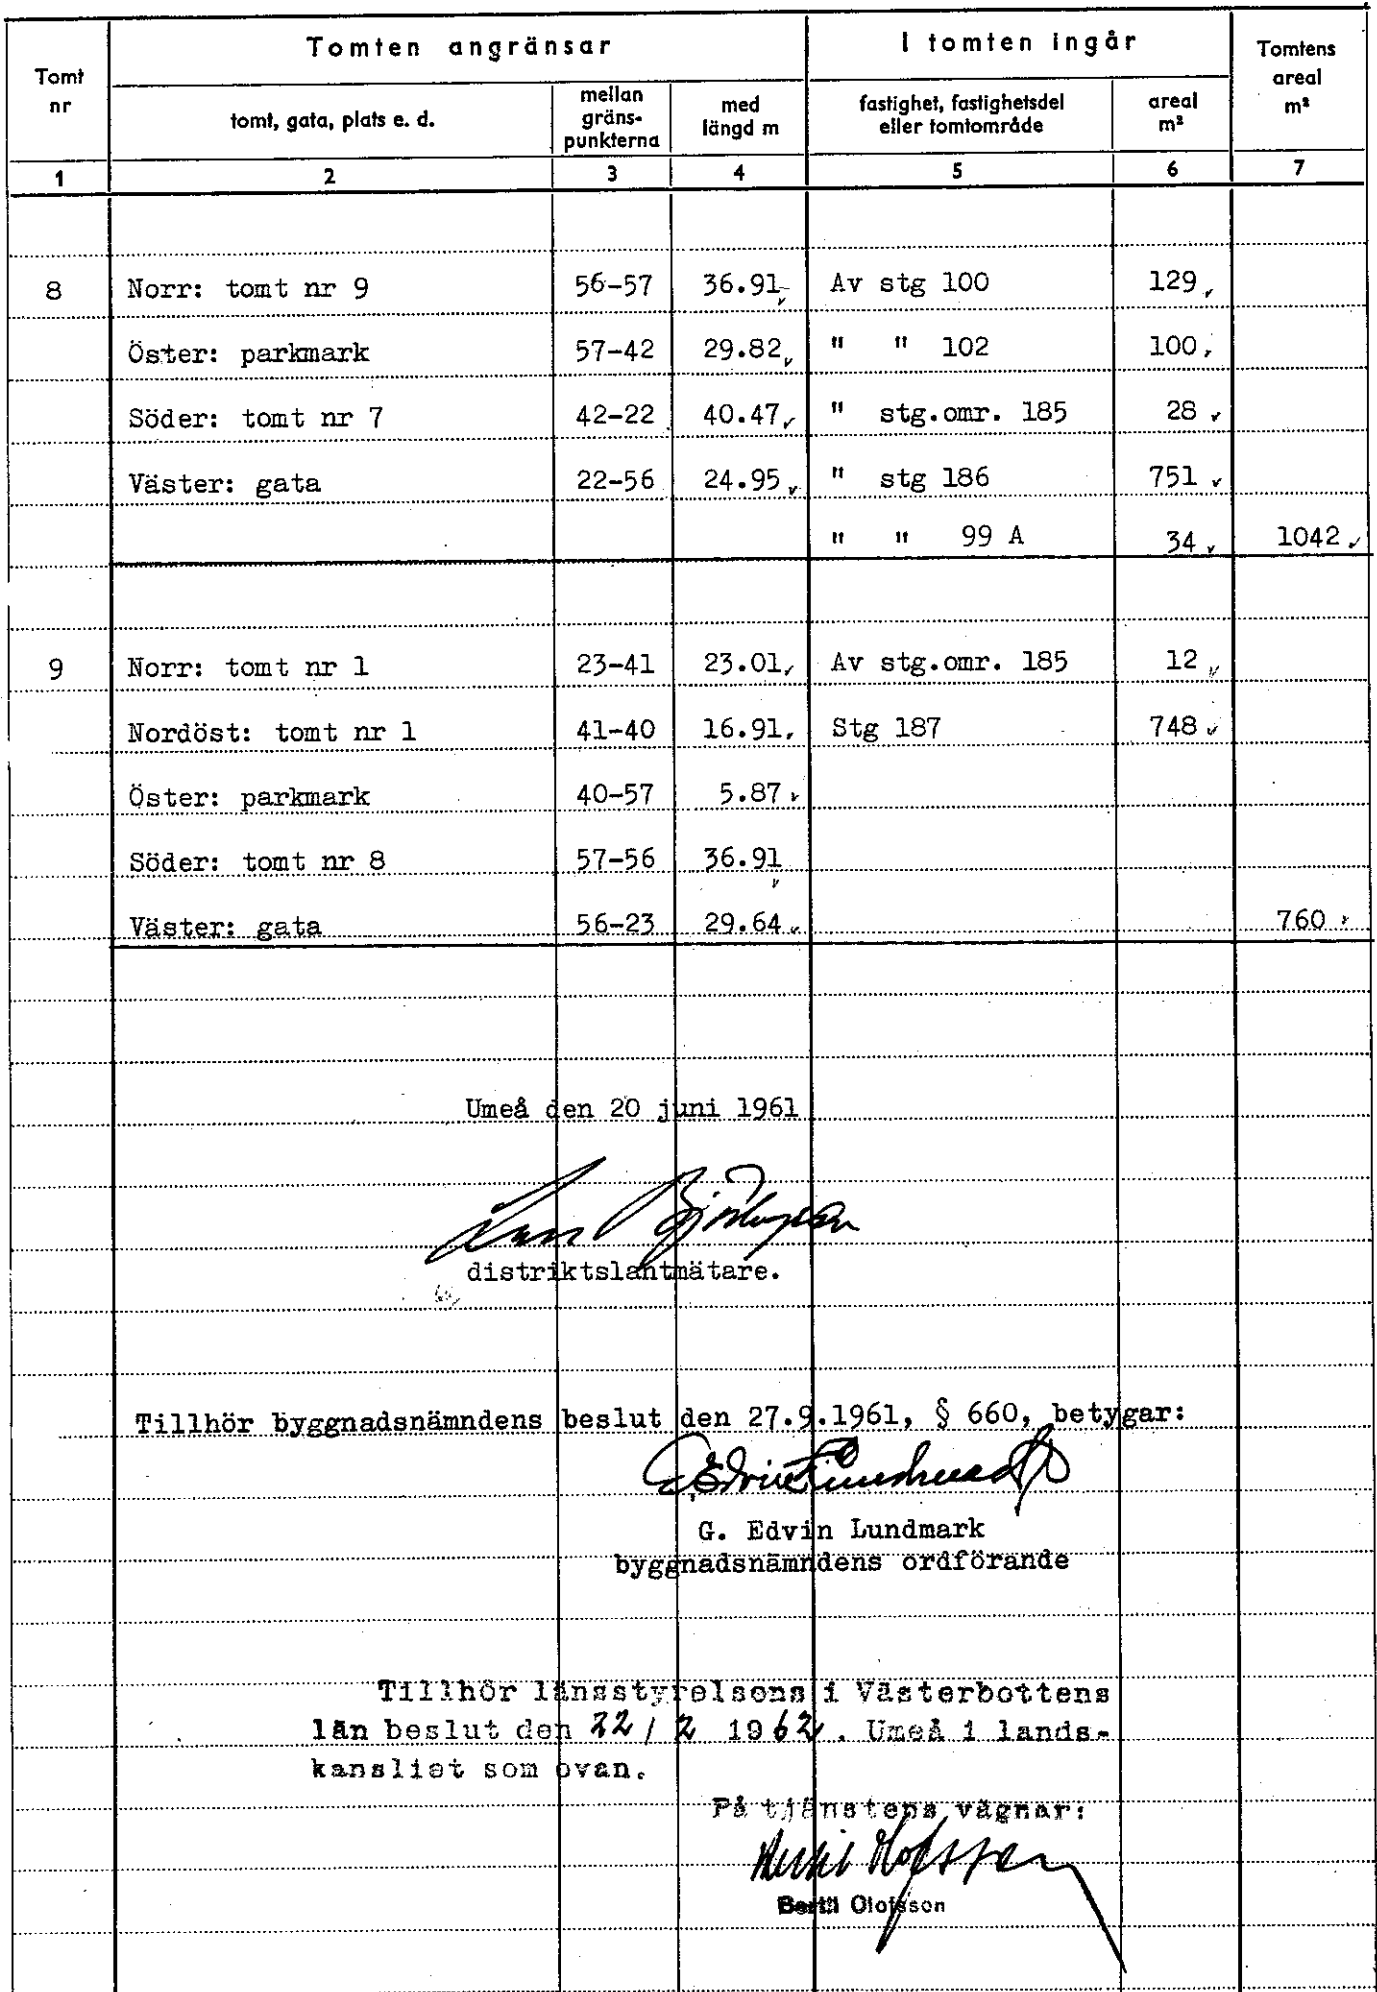 Tomt nr | Tomten angränsar | I tomten ingår | Tomtens areal m²
tomt, gata, plats e. d. | mellan gränspunkterna | med längd m | fastighet, fastighetsdel eller tomtområde | areal m²
1 | 2 | 3 | 4 | 5 | 6 | 7
8 | Norr: tomt nr 9 | 56-57 | 36.91 | Av stg 100 | 129
Öster: parkmark | 57-42 | 29.82 | " " 102 | 100
Söder: tomt nr 7 | 42-22 | 40.47 | " stg.omr. 185 | 28
Väster: gata | 22-56 | 24.95 | " stg 186 | 751
" " 99 A | 34 | 1042
9 | Norr: tomt nr 1 | 23-41 | 23.01 | Av stg.omr. 185 | 12
Nordöst: tomt nr 1 | 41-40 | 16.91 | Stg 187 | 748
Öster: parkmark | 40-57 | 5.87
Söder: tomt nr 8 | 57-56 | 36.91
Väster: gata | 56-23 | 29.64 | 760
Umeå den 20 juni 1961
distriktslantmätare.
Tillhör byggnadsnämndens beslut den 27.9.1961, § 660, betygar:
G. Edvin Lundmark
G. Edvin Lundmark
byggnadsnämndens ordförande
Tillhör länsstyrelsens i Västerbottens
län beslut den 22/2 1962. Umeå i lands-
kansliet som ovan.
På tjänstens vägnar:
Bertil Olofsson
Bertil Olofsson